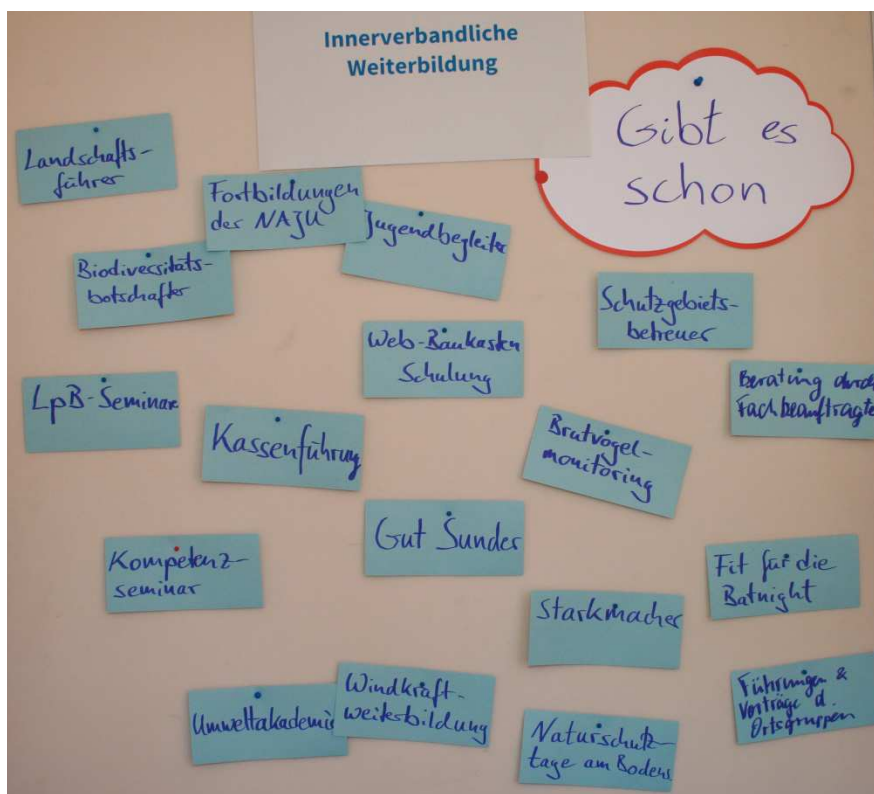 Innerverbandliche
Weiterbildung
Gibt es
schon
Landschafts-
führer
Fortbildungen
der NAJU
Jugendbegleiter
Biodiversitäts-
botschafter
Schutzgebiets-
betreuer
Web-Baukasten
Schulung
LpB-Seminare
Beratung durch
Fachbeauftragte
Kassenführung
Brutvögel-
monitoring
Gut Sunder
Kompetenz-
seminar
Fit für die
Batnight
Starkmacher
Windkraft-
weiterbildung
Umweltakademie
Führungen &
Vorträge d.
Ortsgruppen
Naturschutz-
tage am Bodens.